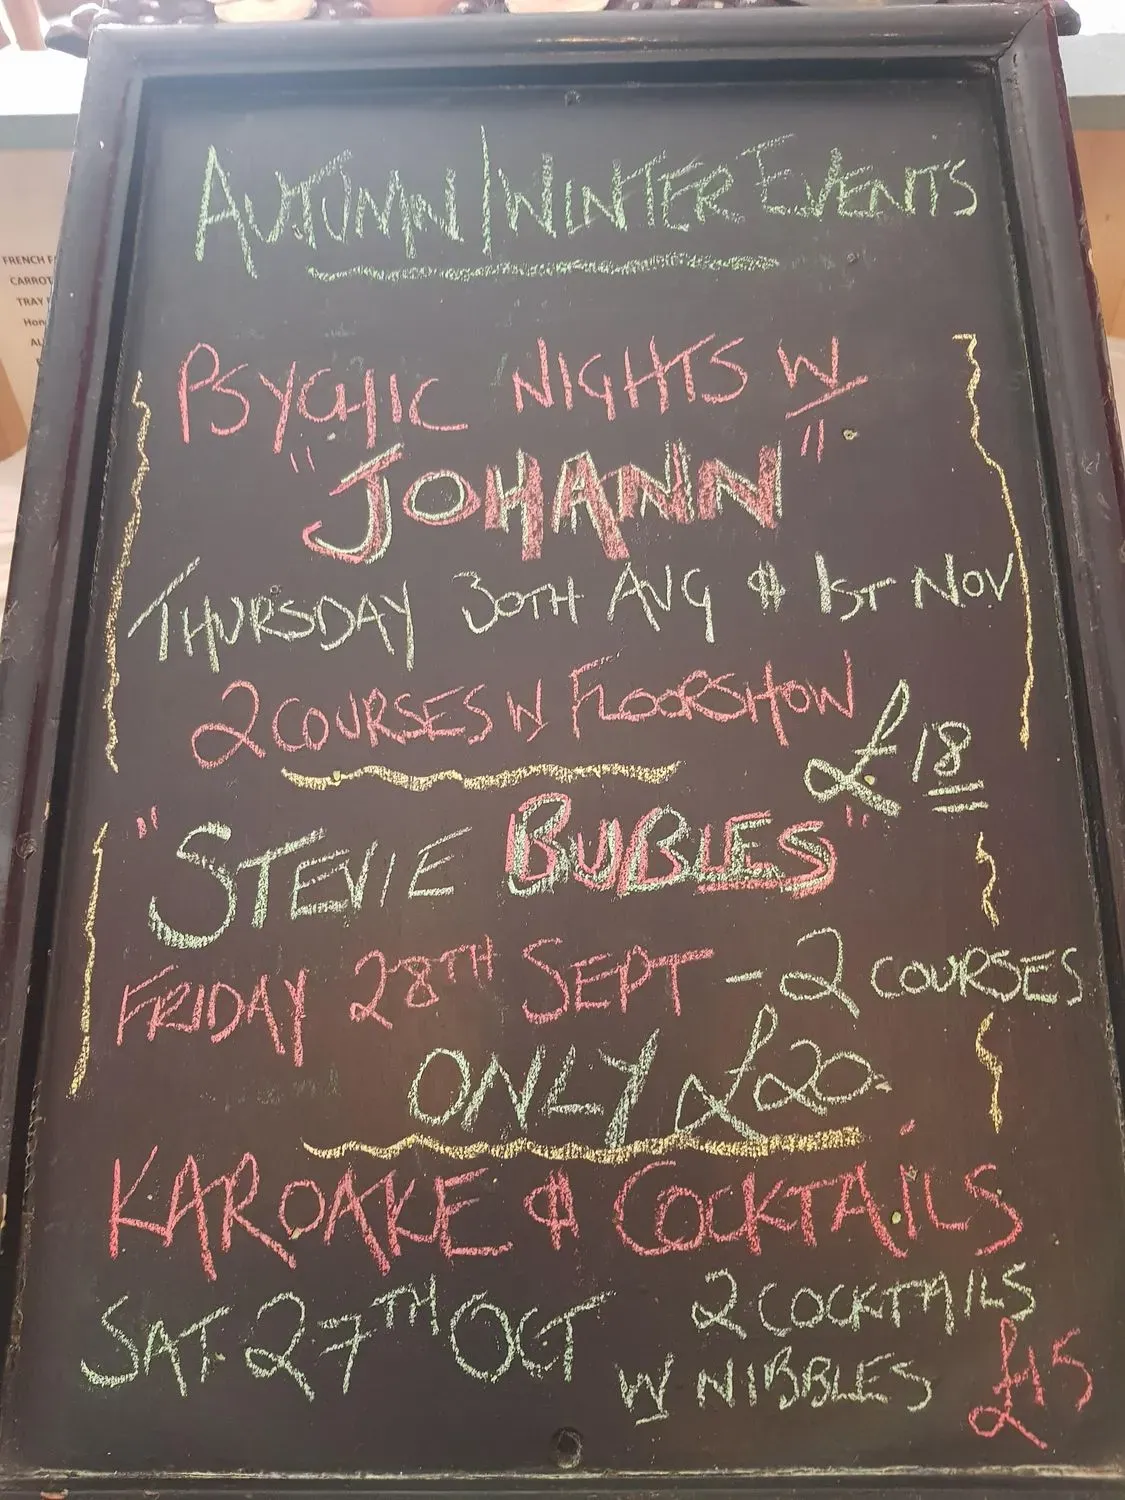 AUTUMN/WINTER EVENTS
PSYCHIC NIGHTS W
"JOHANN"
THURSDAY 30TH AUG & 1ST NOV
2 COURSES N FLOORSHOW
£18
"STEVIE BUBLES"
FRIDAY 28TH SEPT - 2 COURSES
ONLY £20
KAROAKE & COCKTAILS
SAT 27TH OCT 2 COCKTAILS
W NIBBLES £15
FRENCH
CARROT
TRAY